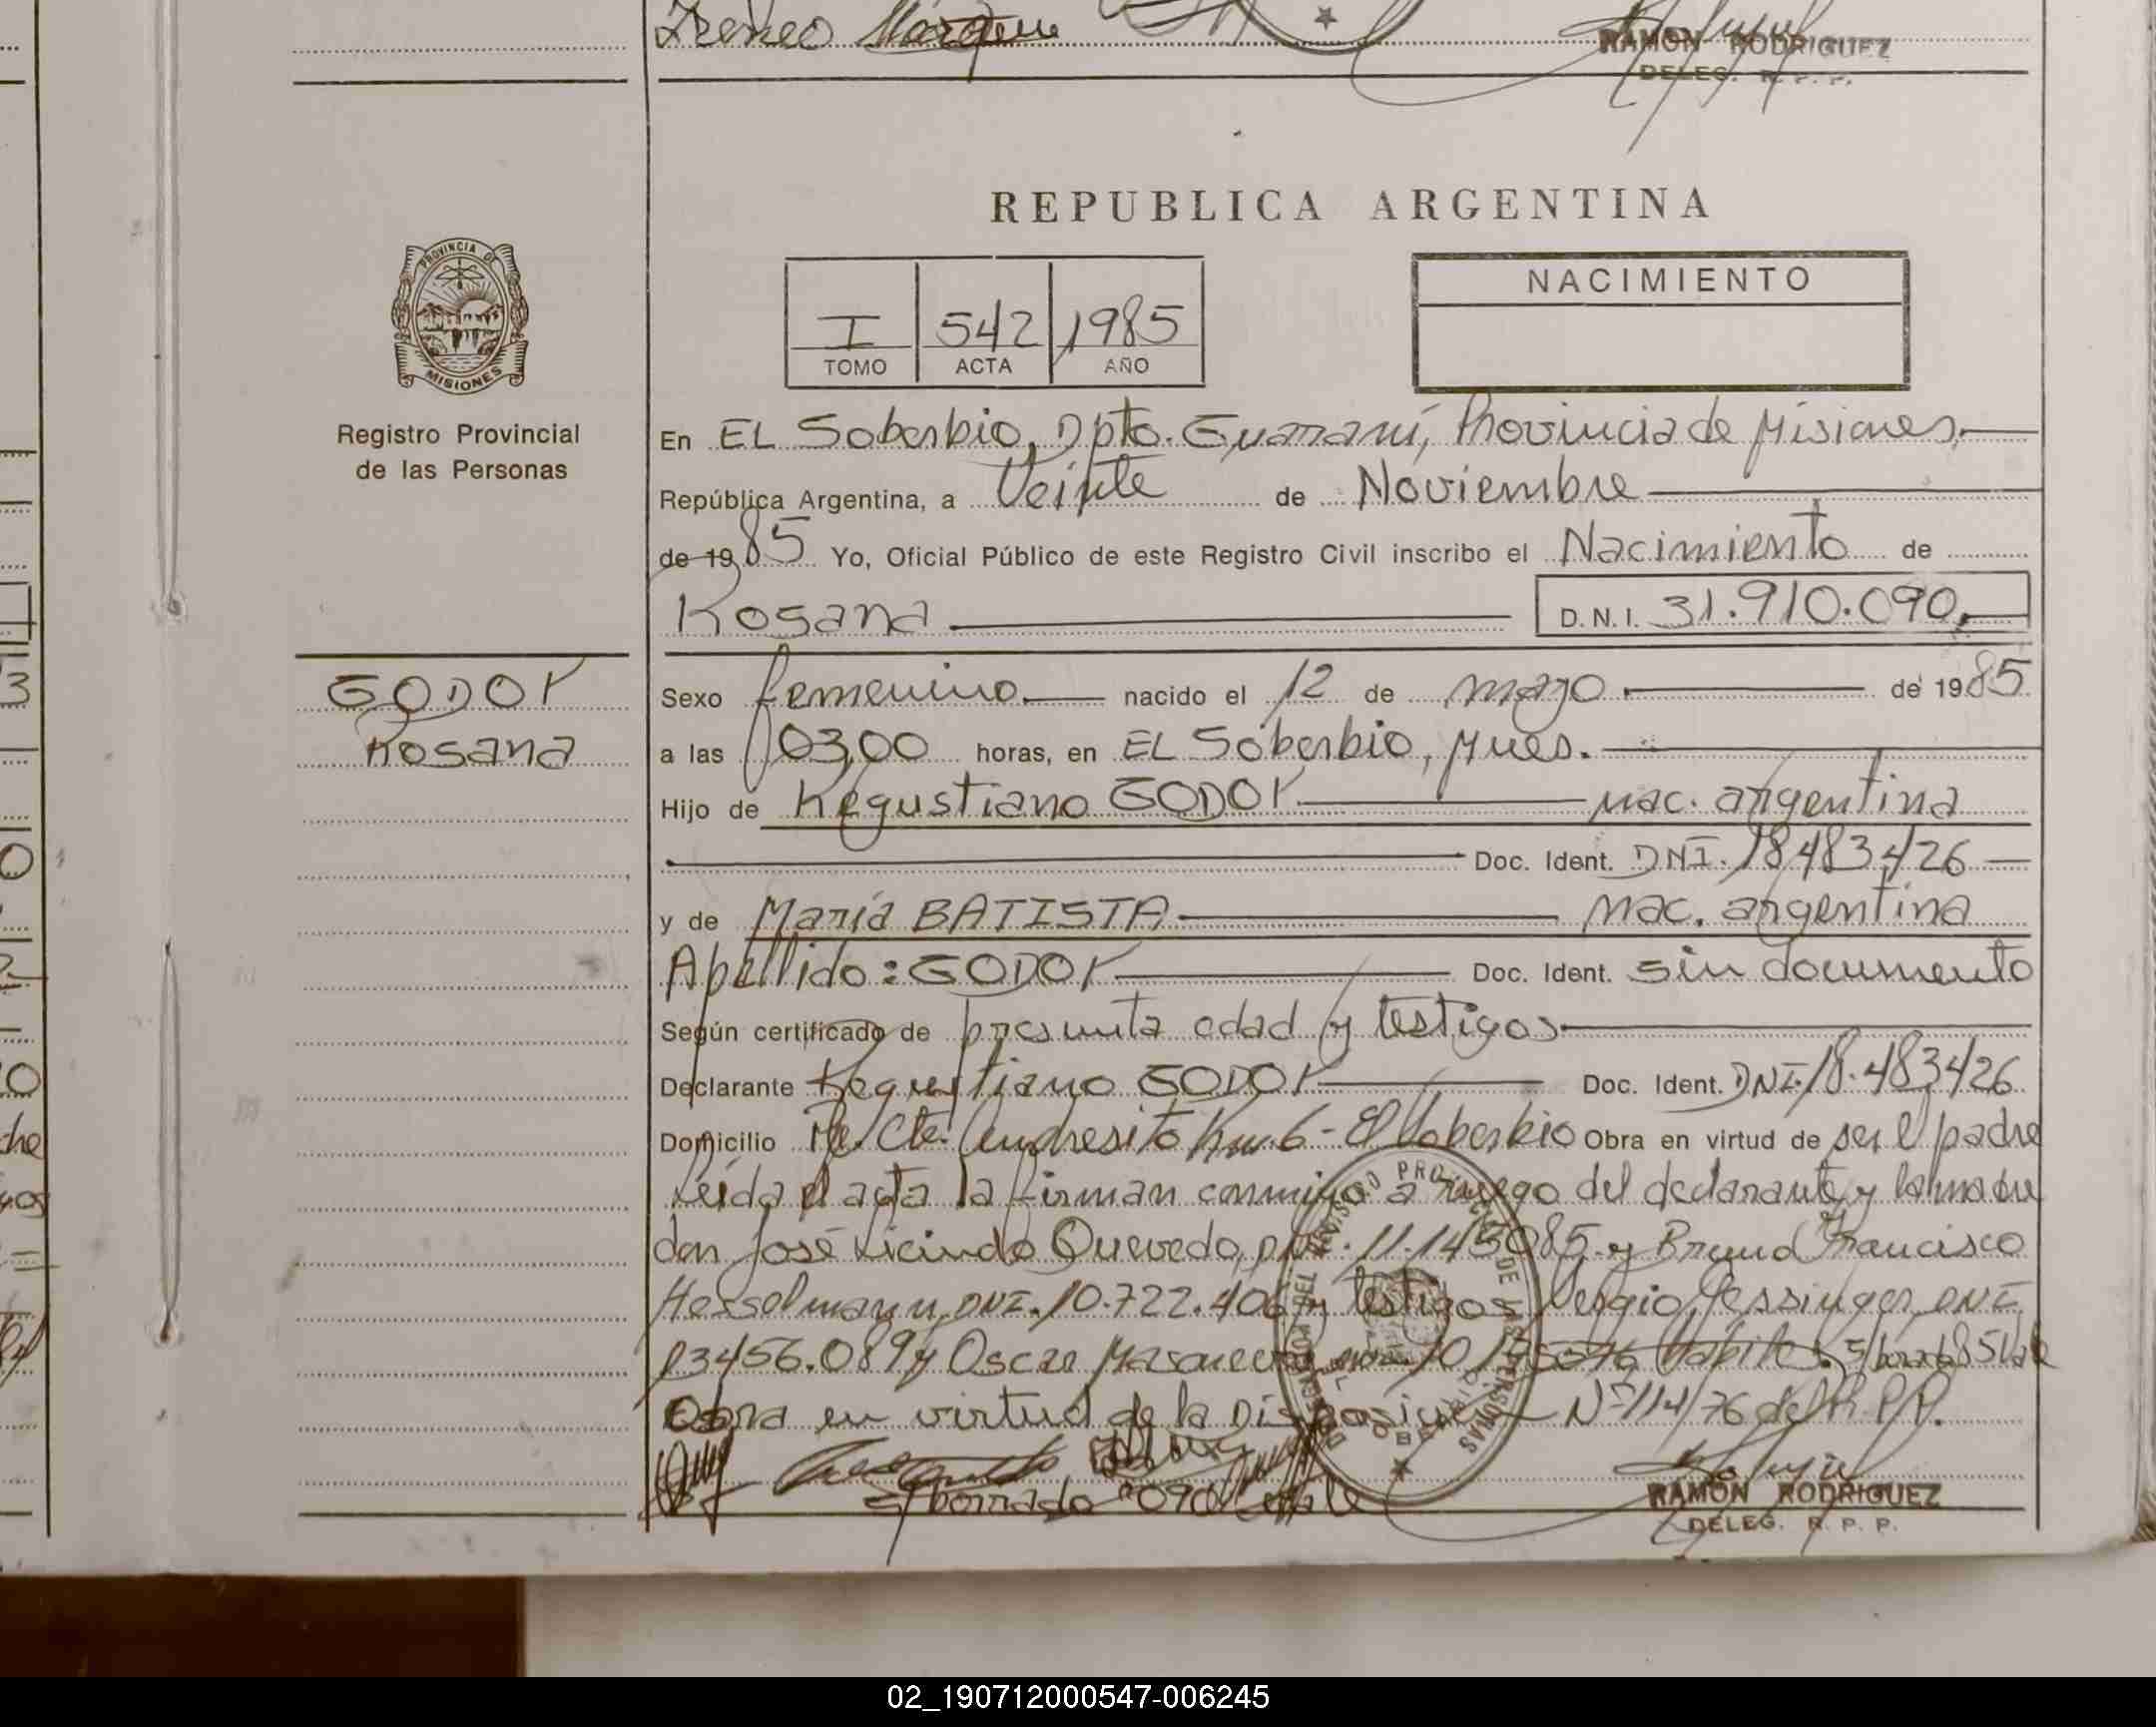 Ireneo
RAMON RODRIGUEZ
DELEG. R. P. P.
REPUBLICA ARGENTINA
PROVINCIA DE
MISIONES
Registro Provincial
de las Personas
I 542 1985
TOMO ACTA AÑO
NACIMIENTO
En EL Soberbio, Dpto. Guaraní, Provincia de Misiones,
República Argentina, a Veinte de Noviembre
de 1985 Yo, Oficial Público de este Registro Civil inscribo el Nacimiento de
Rosana D.N.I. 31.910.090.
GODOY
Rosana
Sexo femenino nacido el 12 de mayo de 1985
a las 03,00 horas, en EL Soberbio, Mnes.
Hijo de Regustiano GODOY nac. argentina
Doc. Ident. DNI. 18483426
y de María BATISTA nac. argentina
Apellido: GODOY Doc. Ident. sin documento
Según certificado de presunta edad y testigos
Declarante Regustiano GODOY Doc. Ident. DNI. 18.483426
Domicilio Cte. Andresito Km. 6 - El Soberbio Obra en virtud de ser el padre
Leída el acta la firman conmigo a ruego del declarante y la madre
don José Licindo Quevedo, 11.145085 y Bruno Francisco
Hesselmann, DNI. 10.722.406 y testigos Sergio DNI
13456.089 y Oscar
Obra en virtud de la Disposición Nº 114/76 del R.P.P.
s/borrado "090" Vale
RAMON RODRIGUEZ
DELEG. R. P. P.
02_190712000547-006245